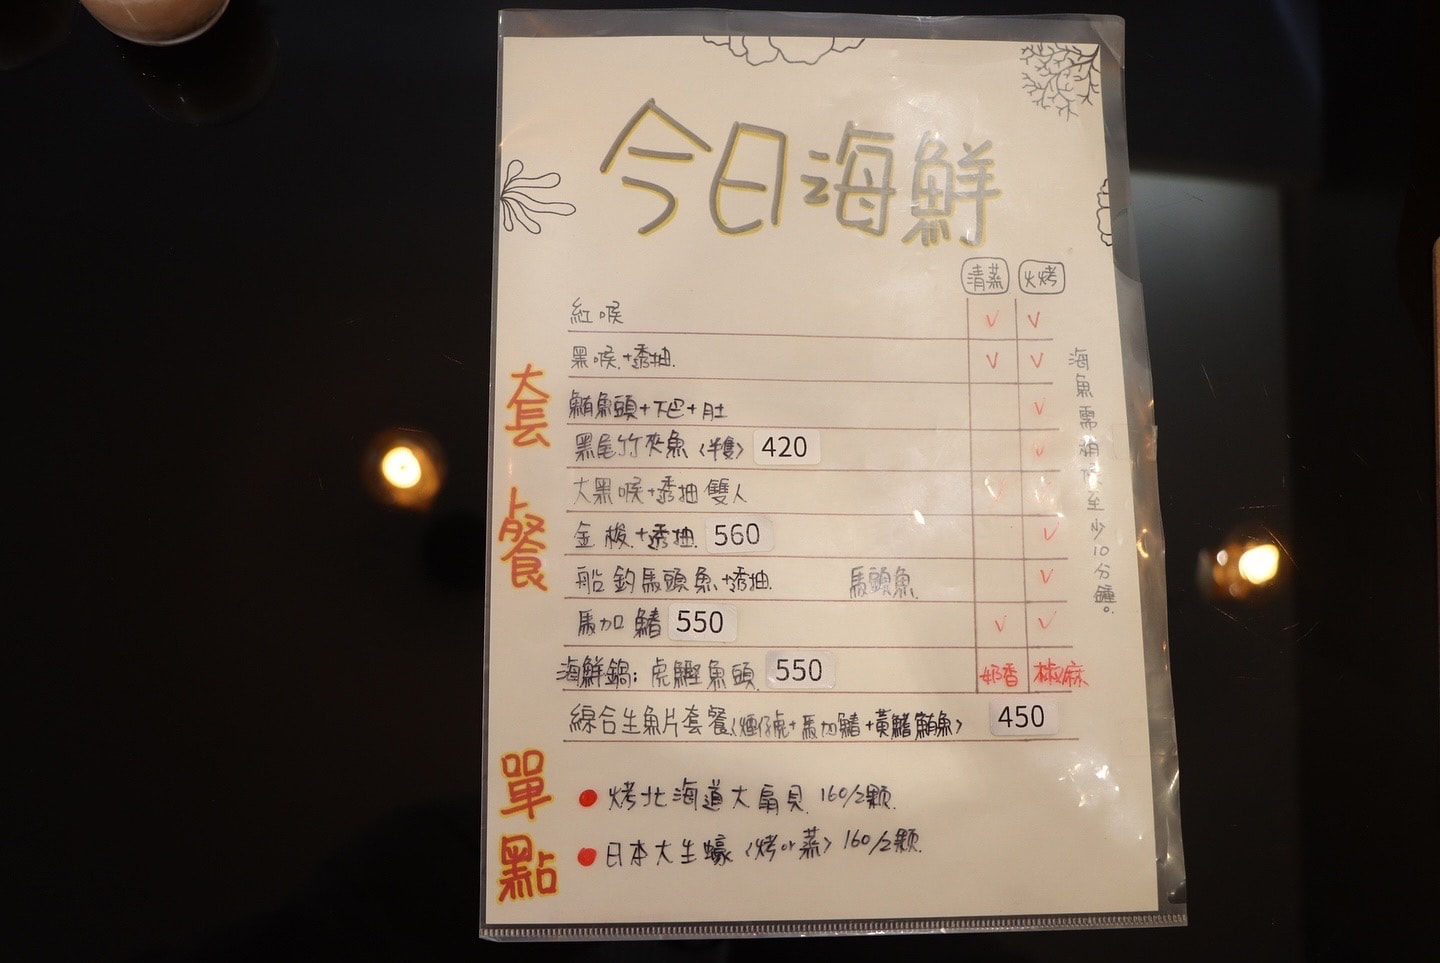 今日海鮮
清蒸 火烤
套餐
紅喉 v v
黑喉+透抽 v v
鮪魚頭+下巴+肚 v
黑尾竹夾魚(半隻) 420 v
大黑喉+透抽 雙人 v v
金梭+透抽 560 v
船釣馬頭魚+透抽 馬頭魚 v
馬加鰆 550 v v
海鮮鍋:虎鰹魚頭 550 奶香 椒麻
綜合生魚片套餐(煙仔虎+馬加鰆+黃鰭鮪魚) 450
海魚需稍候至少10分鐘。
單點
● 烤北海道大扇貝 160/2顆
● 日本大生蠔(烤or蒸) 160/2顆